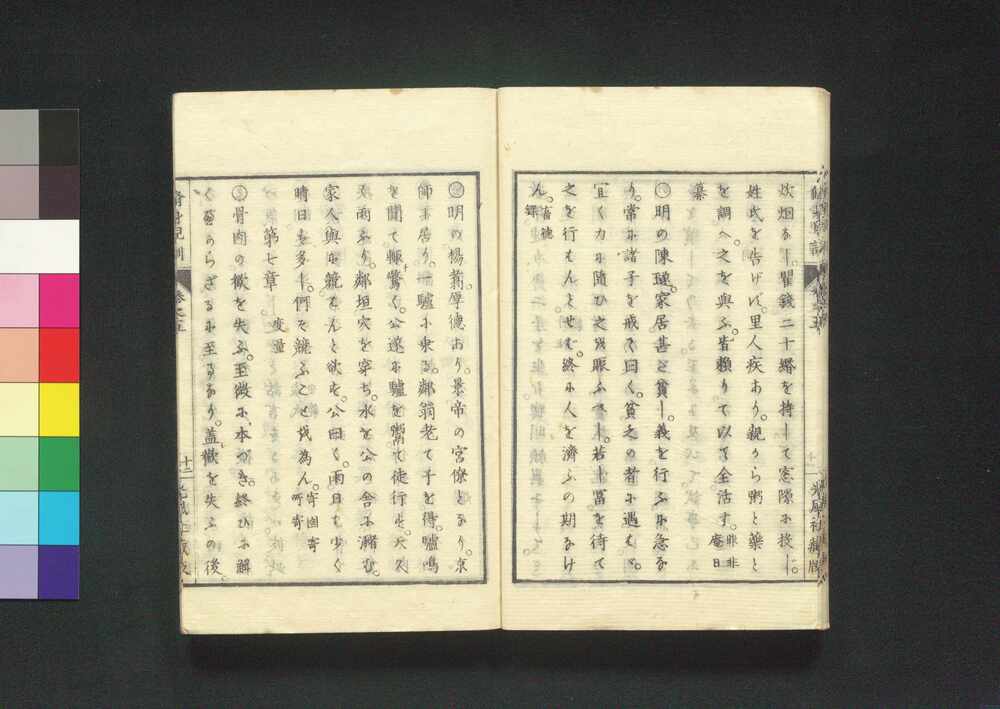 炊烟なし。瞿錢二十緡を持して窓隙に投し。
姓氏を告げず。里人疾あり。親から粥と藥と
を調へ之を與ふ。皆賴りて以て全活す。非非
庵日
纂
明の陳𤩽家居甚だ貧し。義を行ふに急な
り。常に諸子を戒て曰く。貧乏の者に遇はゞ。
宜く力に隨ひ之を賑ふべし。若し富を待て
之を行はんとせば。終に人を濟ふの期なけ
ん。畜德
錄
明の楊翥厚德あり。景帝の宮僚となり。京
師に居り。一驢に乗る。鄰翁老て子を得。驢鳴
を聞て輙驚く。公遂に驢を鬻て徒行す。天久
く雨ふり。鄰垣穴を穿ち。水を公の舍に瀦む。
家人與に競はんと欲す。公曰く。雨日は少く
晴日は多し。何ぞ競ふことを為ん。寄園寄
所寄
第七章 度量
骨肉の歡を失ふ。至微に本づき。終ひに解
く可らざるに至るなり。蓋歡を失ふの後。
脩身兒訓 卷之五 十二 光風社藏版